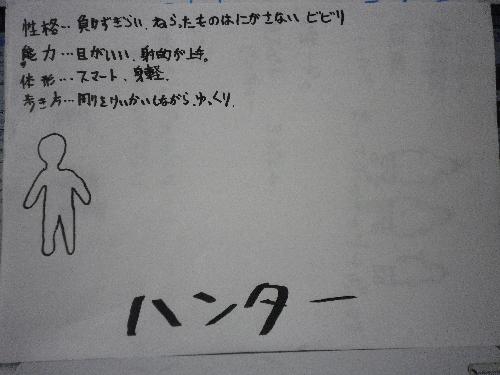 性格…負けずぎらい、ねらったものはにがさない ビビリ
能力…目がいい、射的が上手。
体形…スマート、身軽.
歩き方…周りをけいかいしながら、ゆっくり.
ハンター